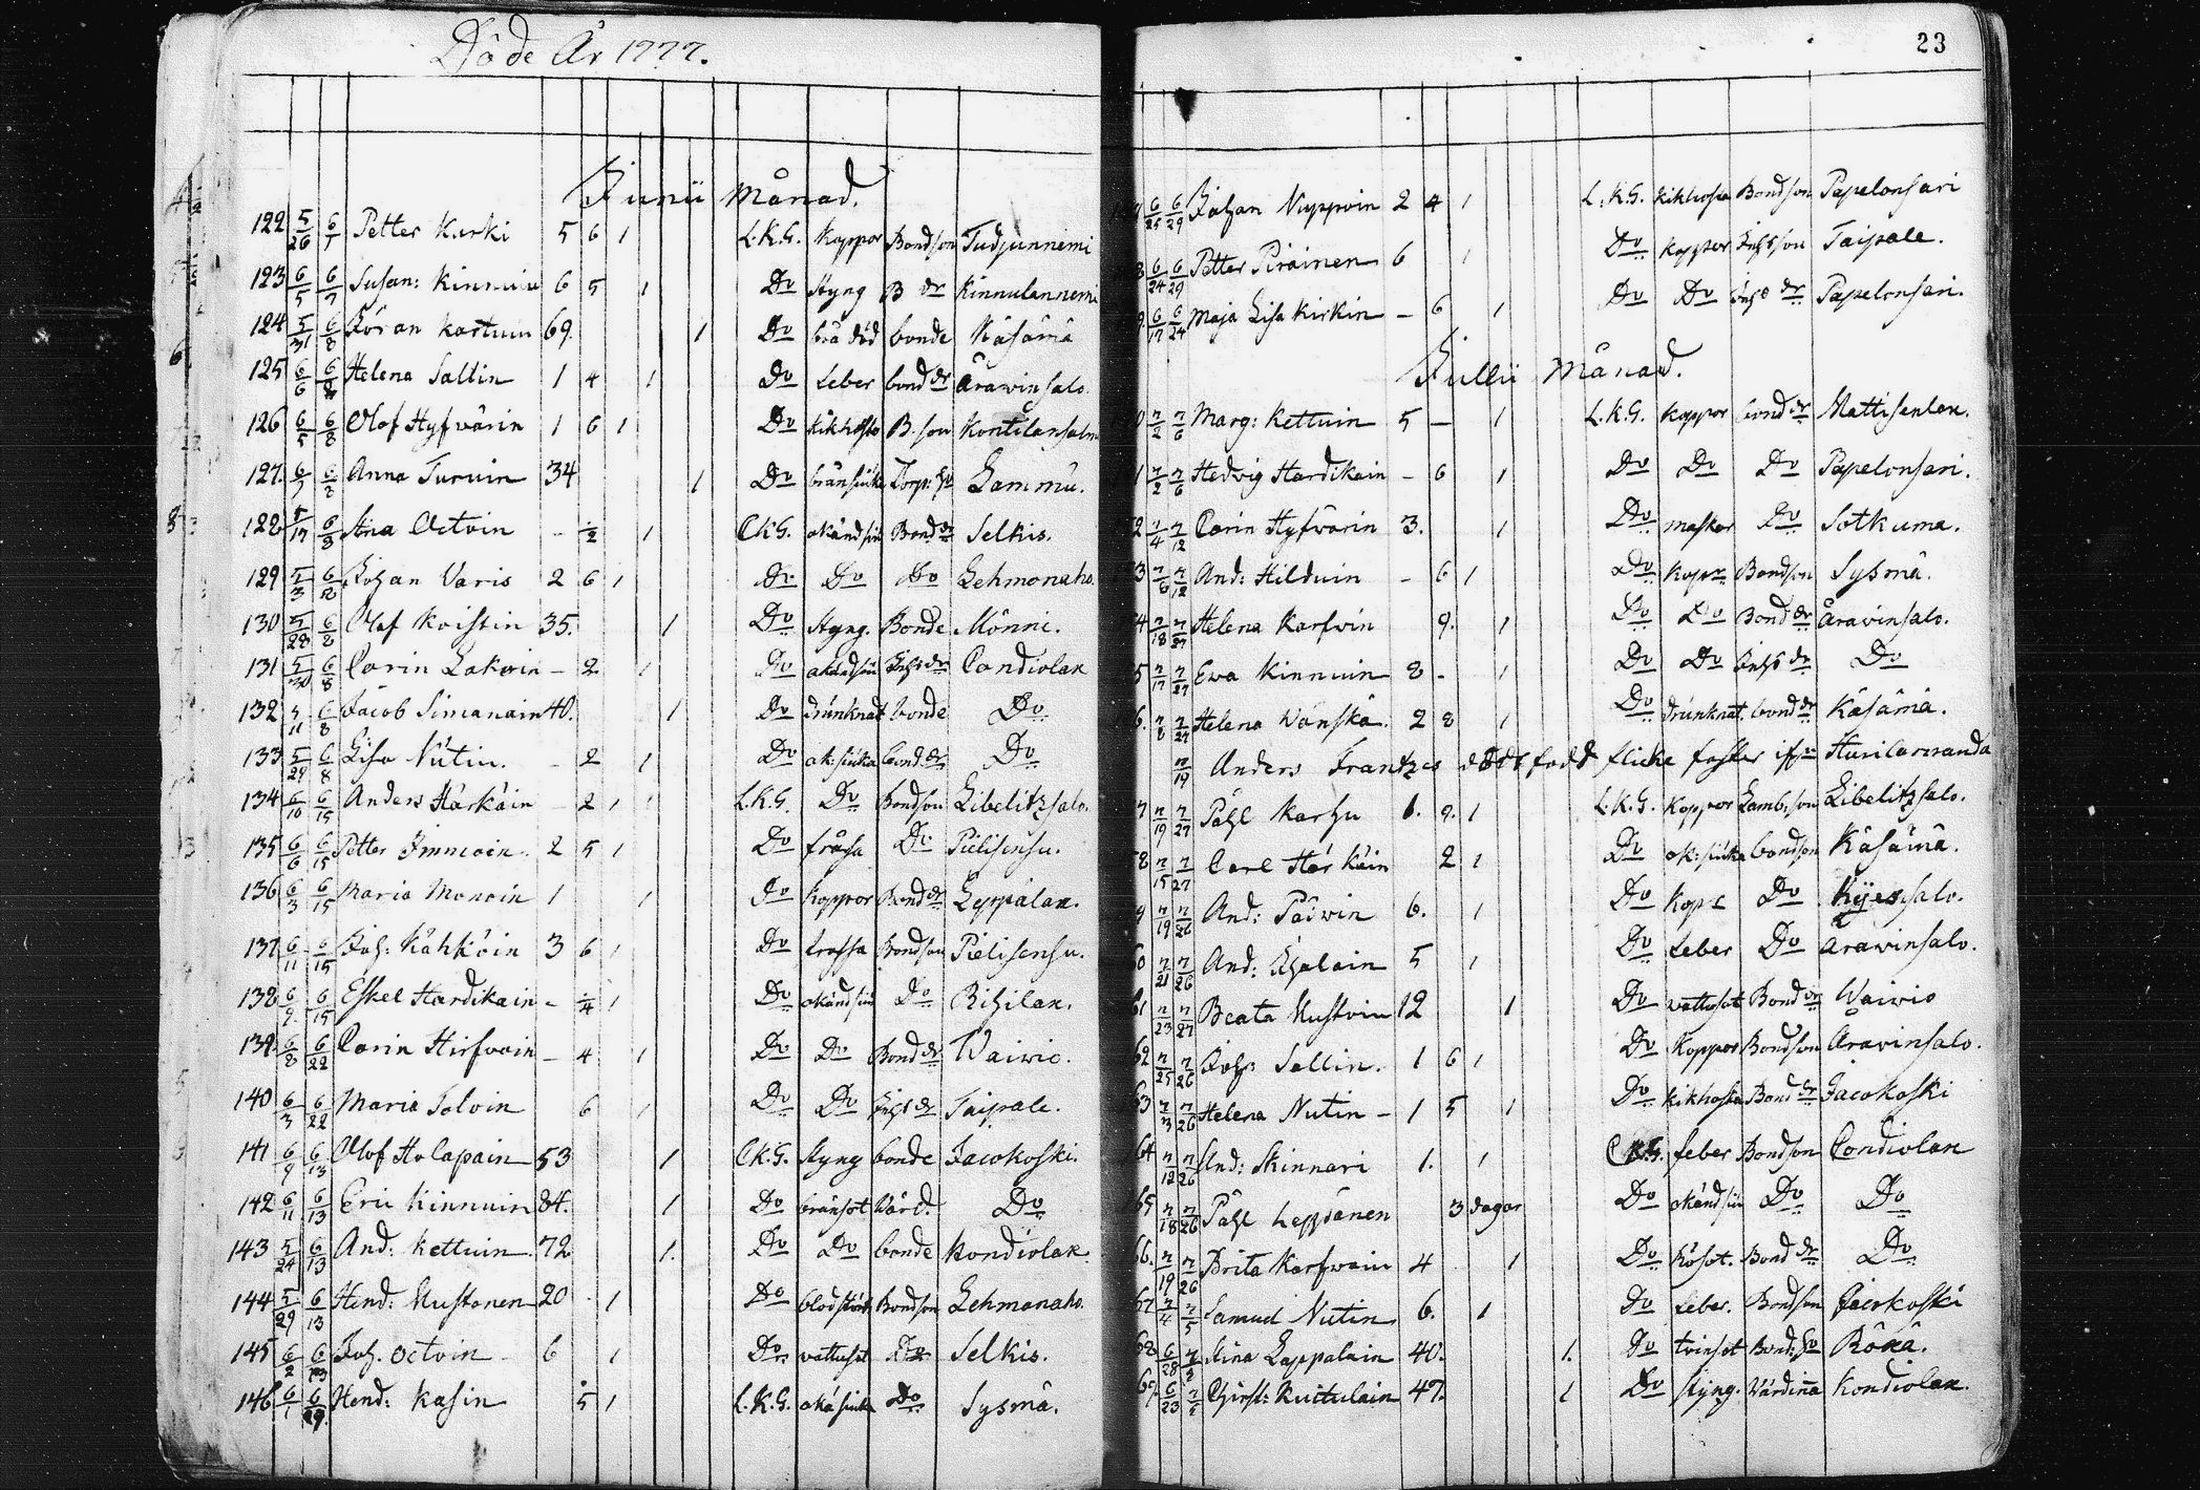 Döde År 1777.
Junii Månad.
122 5/26 6/7 Petter Kurki 5 6 1 L.K.G. Koppor Bondson Tudjunnemi
123 6/5 6/7 Susan: Kinnuin 6 5 1 Do Styng B dr Kinnulannemi
124 5/31 6/8 Jöran Kartuin 69. 1 Do brå död bonde Käsämä
125 6/6 6/8 Helena Sallin 1 4 1 Do feber bond dr Arawinsalo.
126 6/5 6/8 Olof Hyfvärin 1 6 1 Do kikhosta B. son Kontilansalm
127. 6/7 6/8 Anna Turuin 34 1 Do Lammu.
128 5/17 6/8 Stina Octvin - 1/2 1 CKG. okänd siu Bond dr Selkis.
129 5/3 6/8 Johan Varis 2 6 1 Do Do Do Lehmonaho.
130 5/28 6/8 Olof Koistin 35. 1 Do Styng. Bonde Mönni.
131 5/30 6/8 Carin Lakoin - 2. 1 Do okändsiu Inhs dr Condiolax
132 5/11 6/8 Jacob Simanain 40. 1 Do drunknat bonde Do
133 5/29 6/8 Lisa Nutin. - 2 1 Do ok: siuka bond dr Do
134 6/10 6/15 Anders Härkäin - 2 1 L.K.G. Do Bondson Libelitzsalo.
135 6/6 6/15 Petter Immoin. 2 5 1 Do fråssa Do Pielisensu.
136 6/3 6/15 Maria Monoin 1 1 Do Koppor Bond dr Leppälax.
137 6/11 6/15 Joh: Kähköin 3 6 1 Do frossa Bondson Pielisensu.
138 6/9 6/15 Eskel Hardikain - 1/4 1 Do okändsiu Do Rihilax.
139. 6/8 6/22 Carin Hirfvoin - 4 1 Do Do Bond dr Waivio.
140 6/3 6/22 Maria Tolvin 6 1 Do Do Inhs dr Taipale.
141 6/9 6/13 Olof Holapain 53 1 CK.G. Styng bonde Jacokoski.
142 6/11 6/13 Eric Kinnuin 84. 1 Do bränsot Wärd. Do
143 5/24 6/13 And: Kettuin 72 1. Do Do bonde Kondiolax
144 5/29 6/13 Hend: Mustonen 20 1 Do blodstört Bondson Lehmonaho.
145 6/2 6/13 Joh. Octvin - 6 1 Do vattusot Do Selkis.
146 6/1 6/29 Hend: Kasin 5 1 L.K.G. okä siuka Do Sysmä.
23
6/25 6/29 Johan Nuppoin 2 4 1 L.K.G. Kikhosta Bondson Papelonsari
6/24 6/29 Petter Piräinen 6 1 Do Koppor Inhs son Taipale.
9. 6/17 6/24 Maja Lisa Kirkin - 6 1 Do Do Inhs dr Papelonsari.
Jullii Månad.
0 7/2 7/6 Marg: Kettuin 5 - 1 L.K.G. Koppor bond dr Mattisenlax.
1 7/2 7/6 Hedvig Hardikain - 6 1 Do Do Do Papelonsari.
2 7/4 7/12 Carin Hyfvärin 3. 1 Do maskar Do Sotkuma.
3 7/6 7/12 And: Hilduin - 6 1 Do Kopor Bondson Sysmä.
4 7/18 7/27 Helena Karfvin 9. 1 Do Do Bond dr Arawinsalo.
5 7/17 7/27 Ewa Kinnuin 8 - 1 Do Do Inhs dr Do
6. 7/8 7/27 Helena Wänskä. 2 8 1 Do drunknat. bond dr Käsämä.
7/19 Anders Frantzes död född flicka
7 7/19 7/27 Påhl Karhu 1. 9. 1 L.K.G. Koppor Lamb: son Libelitzsalo.
8 7/15 7/27 Carl Härkäin 2 1 Do ok: siuka bondson Käsämä.
9 7/19 7/26 And: Päivin 6. 1 Do Kopr Do Kijessalo.
0 7/21 7/26 And: 5 1 Do feber Do Arawinsalo.
61 7/23 7/27 Beata Mustoin 12 1 Do vattusot Bond dr Waivio
62 7/25 7/26 Joh: Sallin. 1 6 1 Do Koppor Bondson Arawinsalo.
63 7/3 7/26 Helena Nutin - 1 5 1 Do Kikhosta Bond dr Jacokoski
64 7/12 7/26 And: Skinnari 1. 1 C.K.G. feber Bondson Condiolax
65 7/18 7/26 Påhl Leppänen 3 dagar Do okändsiu Do Do
66. 7/19 7/26 Brita Karfvain 4 1 Do Rösot. Bond dr Do
67 7/4 7/5 Samuel Nutin 6. 1 Do feber. Bondson
68 6/28 Stina Lappalain 40. 1. Do tvinsot
69. 6/23 Christ: Kuitulain 47. 1 Do styng. Värdinna Kondiolax.